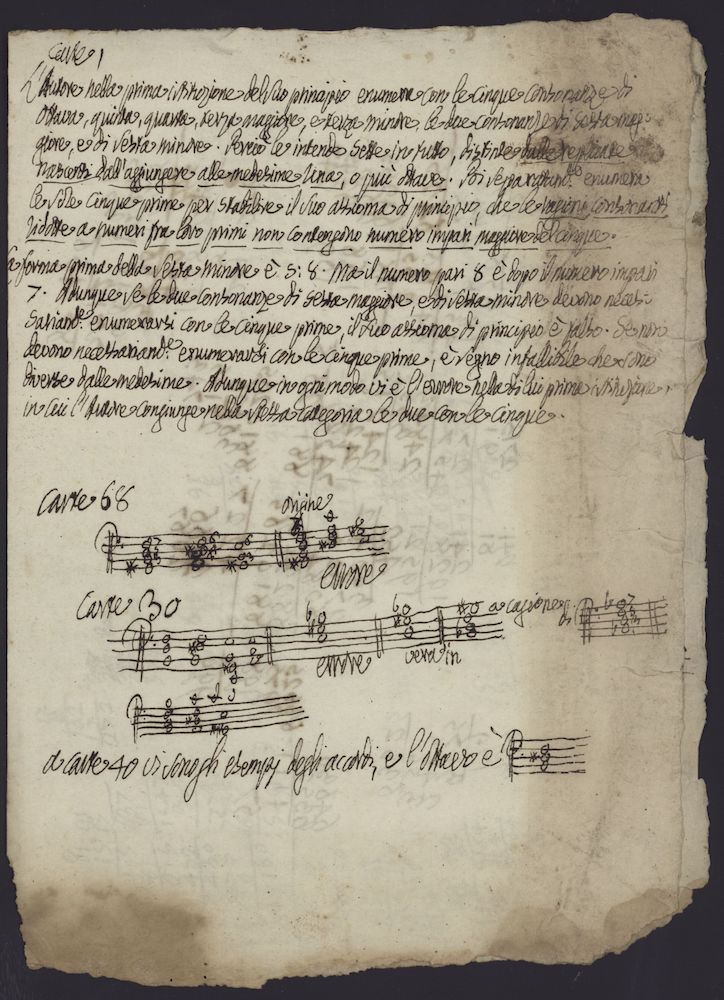 Carte 1
L'Autore nella prima istituzione del suo principio enumera con le cinque consonanze di
Ottava, quinta, quarta, terza maggiore, e terza minore, le due consonanze di sesta mag-
giore, e di sesta minore. Perciò le intende sette in tutto, distinte dalle replicate
nascenti dall'aggiungere alle medesime una, o più ottave. Poi separatam.te enumera
le sole cinque prime per stabilire il suo assioma di principio, che le ragioni consonanti
ridotte a numeri fra loro primi non contengono numero impari maggiore del cinque.
La forma prima della sesta minore è 5:8. Ma il numero pari 8 è dopo il numero impari
7. Adunque se le due consonanze di sesta maggiore, e di sesta minore devono neces-
sariam.te enumerarsi con le cinque prime, il suo assioma di principio è falso. Se non
devono necessariam.te enumerarsi con le cinque prime, è segno infallibile che sono
diverse dalle medesime. Adunque in ogni modo vi è l'errore nella di lui prima istituzione,
in cui l'Autore congiunge nella stessa categoria le due con le cinque.
Carte 68
origine
errore
Carte 30
a cagione di
errore
vera in
A carte 40 vi sono gli esempj degli accordi, e l'ottavo è